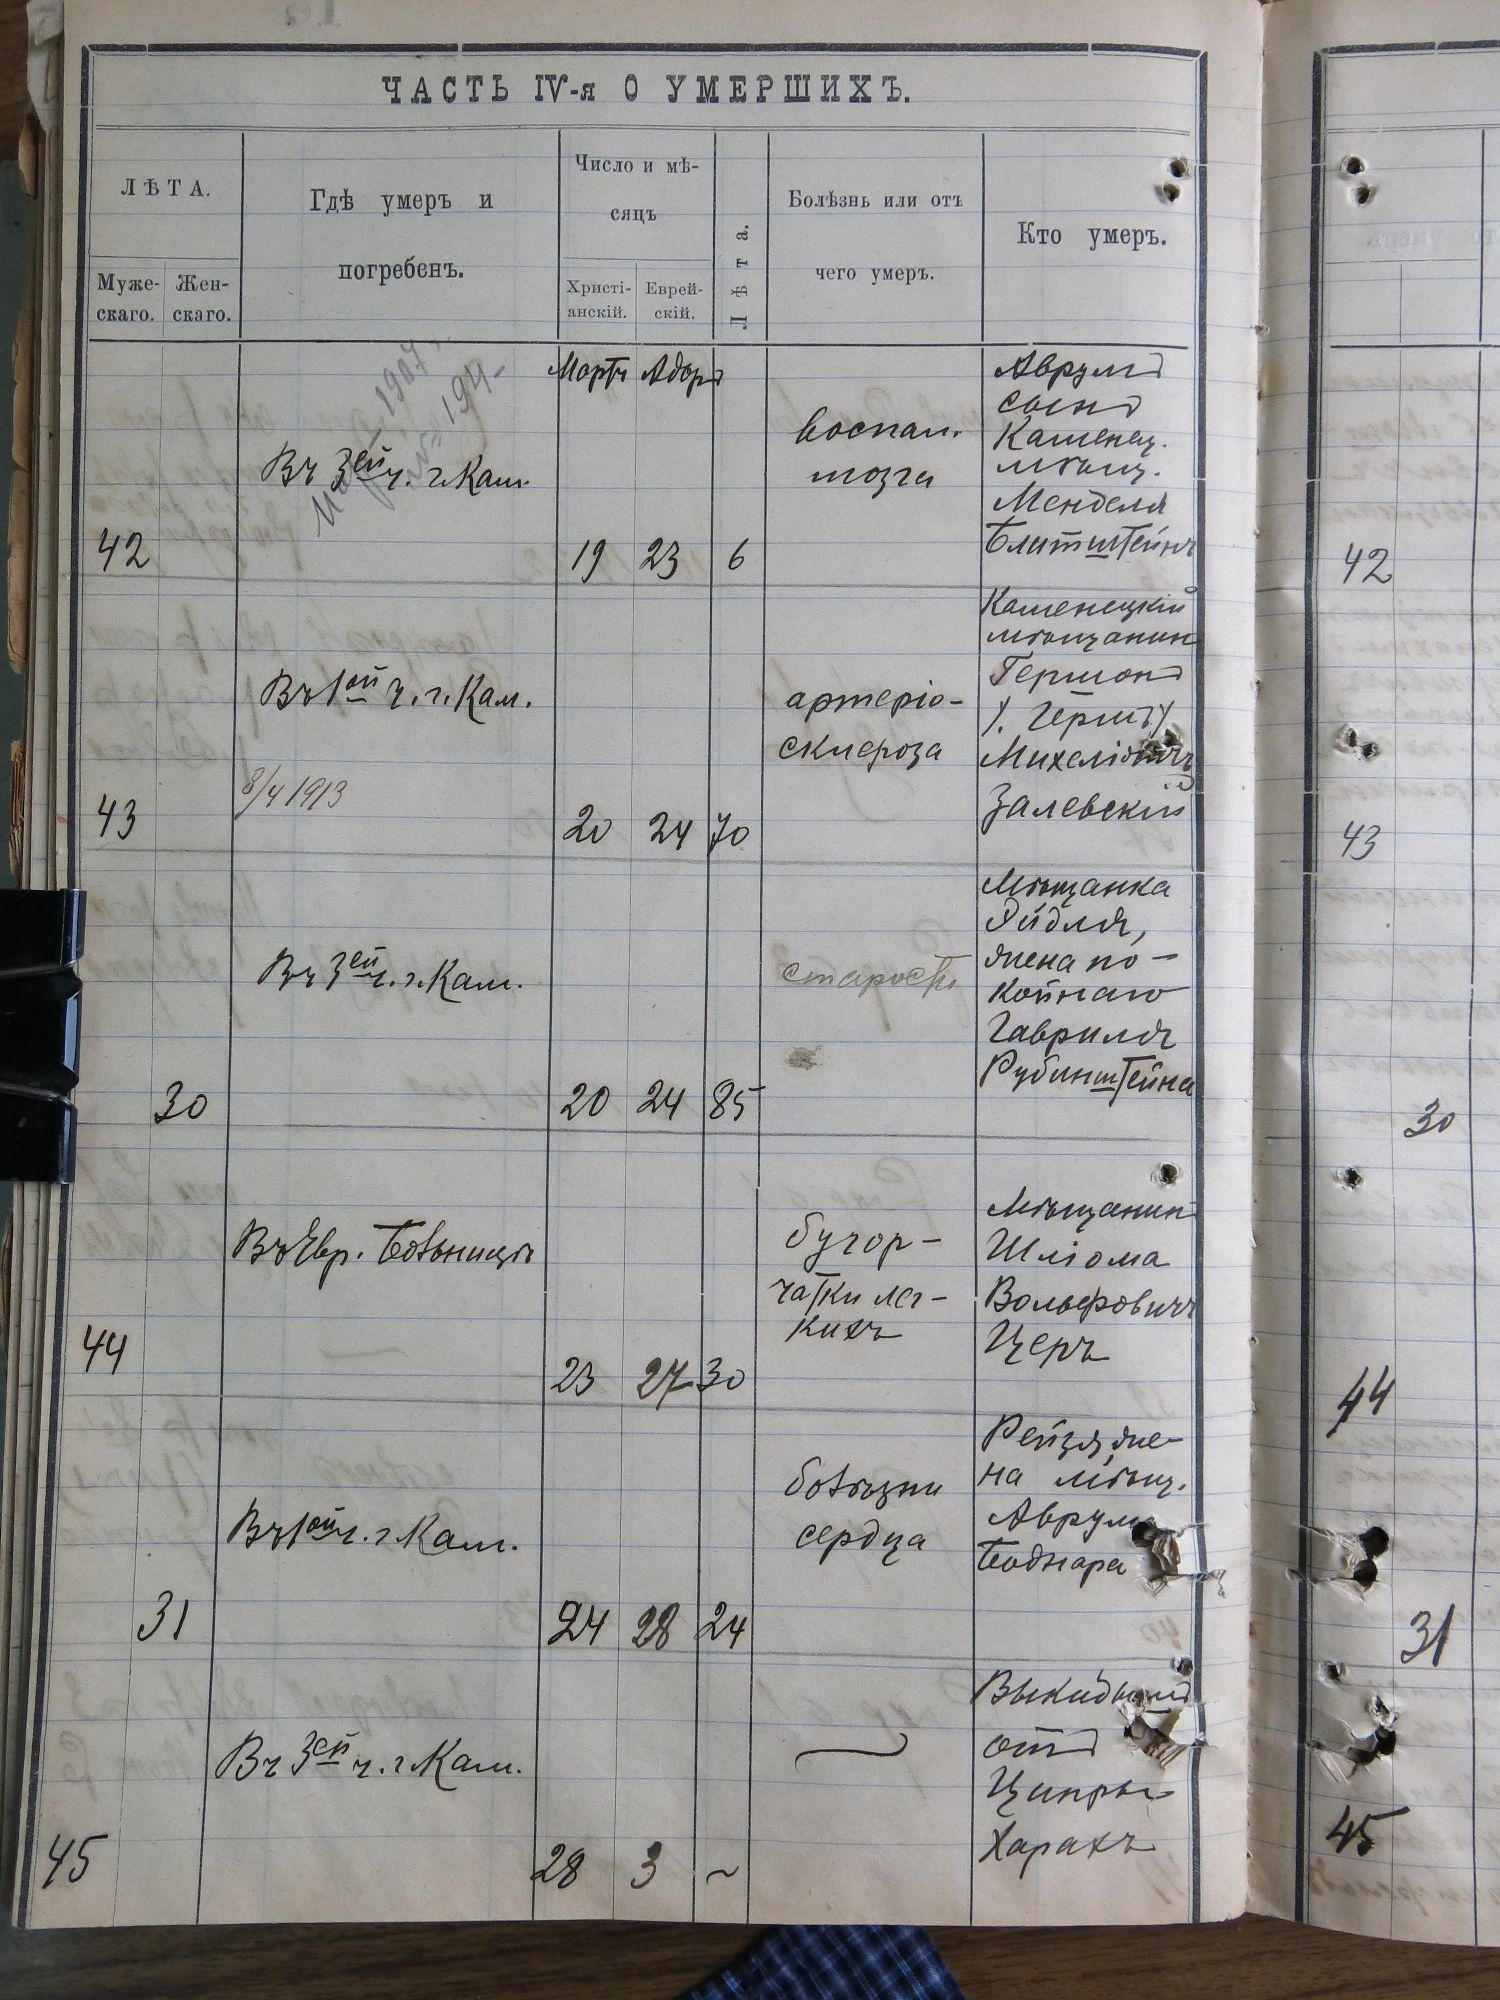 ЧАСТЬ IV-я О УМЕРШИХЪ.
ЛѢТА.
Муже-
скаго.
Жен-
скаго.
Гдѣ умеръ и
погребенъ.
Число и мѣ-
сяцъ
Христі-
анскій.
Еврей-
скій.
Лѣта.
Болѣзнь или отъ
чего умеръ.
Кто умеръ.
Мартъ Адаръ
42
Въ 3ей ч. г. Кам.
1907
19 23 6
воспал.
мозга
Аврумъ
сынъ
Каменец.
мѣщ.
Менделя
Блитштейнъ
42
43
Въ 1ой ч. г. Кам.
8/4 1913
20 24 70
артеріо-
склероза
Каменецкій
мѣщанин
Гершонъ
Михелі
Залевскій
43
30
Въ 3ей ч. г. Кам.
20 24 85
старости
Мѣщанка
Эйдля,
жена по-
койнаго
Гаврила
Рубинштейна
30
44
Въ Евр. Больницѣ
23 27 30
бугор-
чатки лег-
кихъ
Мѣщанинъ
Шліома
Вольфовичъ
Церъ
44
31
Въ 1ой ч. г Кам.
24 28 24
болѣзни
сердца
Рейзя, же-
на мѣщ.
Аврума
Боднара
31
45
Въ 3ей ч. г Кам.
28 3 ~
Выкидышъ
отъ
Ципры
Харахъ
45